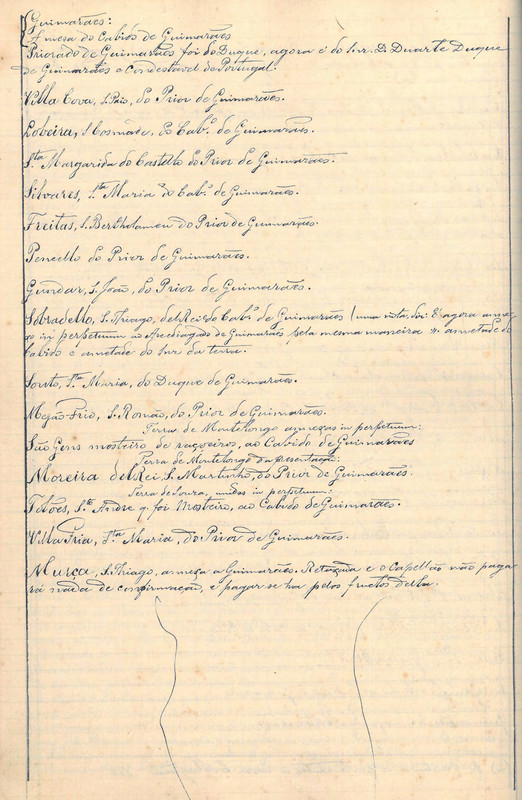 Guimarães:
A mesa do Cabido de Guimarães
Priorado de Guimarães foi do Duque, agora é do Snr. D. Duarte Duque
de Guimarães e Condestavel de Portugal.
Villa Cova, S. Paio, do Prior de Guimarães.
Lobeira, S. Cosmade, do Cab.º de Guimarães.
S.ta Margarida do Castello do Prior de Guimarães.
Silvares, S.ta Maria do Cab.º de Guimarães.
Freitas, S. Bertholameu do Prior de Guimarães.
Pencello do Prior de Guimarães.
Gundar, S. João, do Prior de Guimarães.
Sobradello, S. Thiago, delRei do Cab.º de Guimarães (uma nota diz: E agora
in perpetuum ao Arcediagado de Guimarães pela mesma maneira ametade do
Cabido e ametade do Snr da terra.
Souto, S.ta Maria, do Duque de Guimarães.
Mejão-Frio, S. Romão, do Prior de Guimarães.
Terra de Montelongo annexas in perpetuum:
São Gens mosteiro de raçoeiros, ao Cabido de Guimarães
Terra de Montelongo da presentação:
Moreira delRei, S. Martinho, do Prior de Guimarães.
Terra de Souza, unidas in perpetuum:
S.to André q. foi Mosteiro, ao Cabido de Guimarães.
Villa Fria, S.ta Maria, do Prior de Guimarães.
Murça, S. Thiago, annexa a Guimarães. Retaxada e o Capellão não paga-
rá nada de confirmação, e pagar-se ha pelos fructos della.